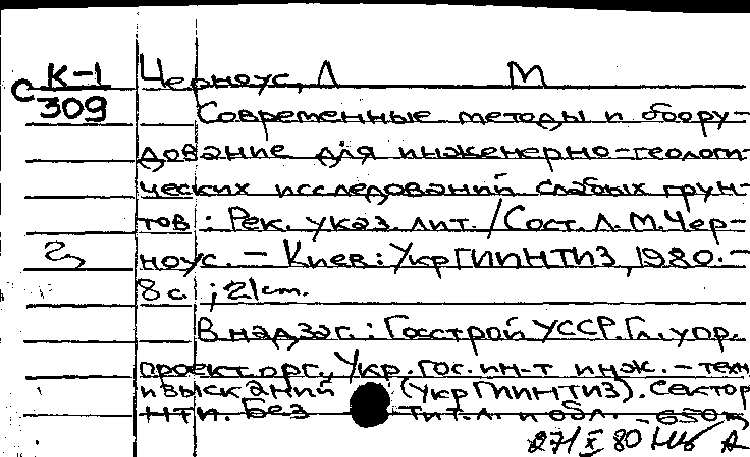 К-1 Черноус, Л М
С 309 Современные методы и обору-
дование для инженерно-геологи-
ческих исследований слабых грун-
тов: Рек. указ. лит. / Сост. Л. М. Чер-
ноус. – Киев: УкрГИИНТИЗ, 1980. –
8 с ; 21 cm.
В надзаг.: Госстрой УССР. Гл. упр.
проект. орг., Укр. гос. ин-т инж. – техн
изысканий (УкрГИИНТИЗ). Сектор
НТИ. Без тит. л. и обл. – 650
27/X 80